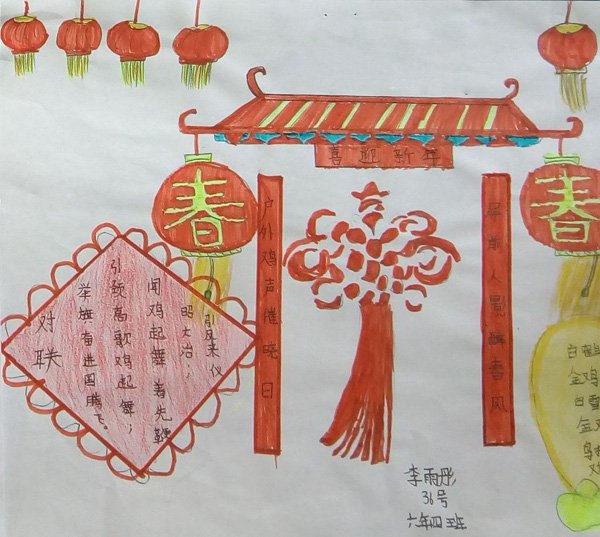 喜迎新年
春
春
户外鸡声催晓日
屏前人影醉春风
对联
引凤来仪
昭大治；
闻鸡起舞着先鞭
引颈高歌鸡起舞；
举旗奋进国腾飞。
金鸡
白雪
李雨彤
36号
六年四班